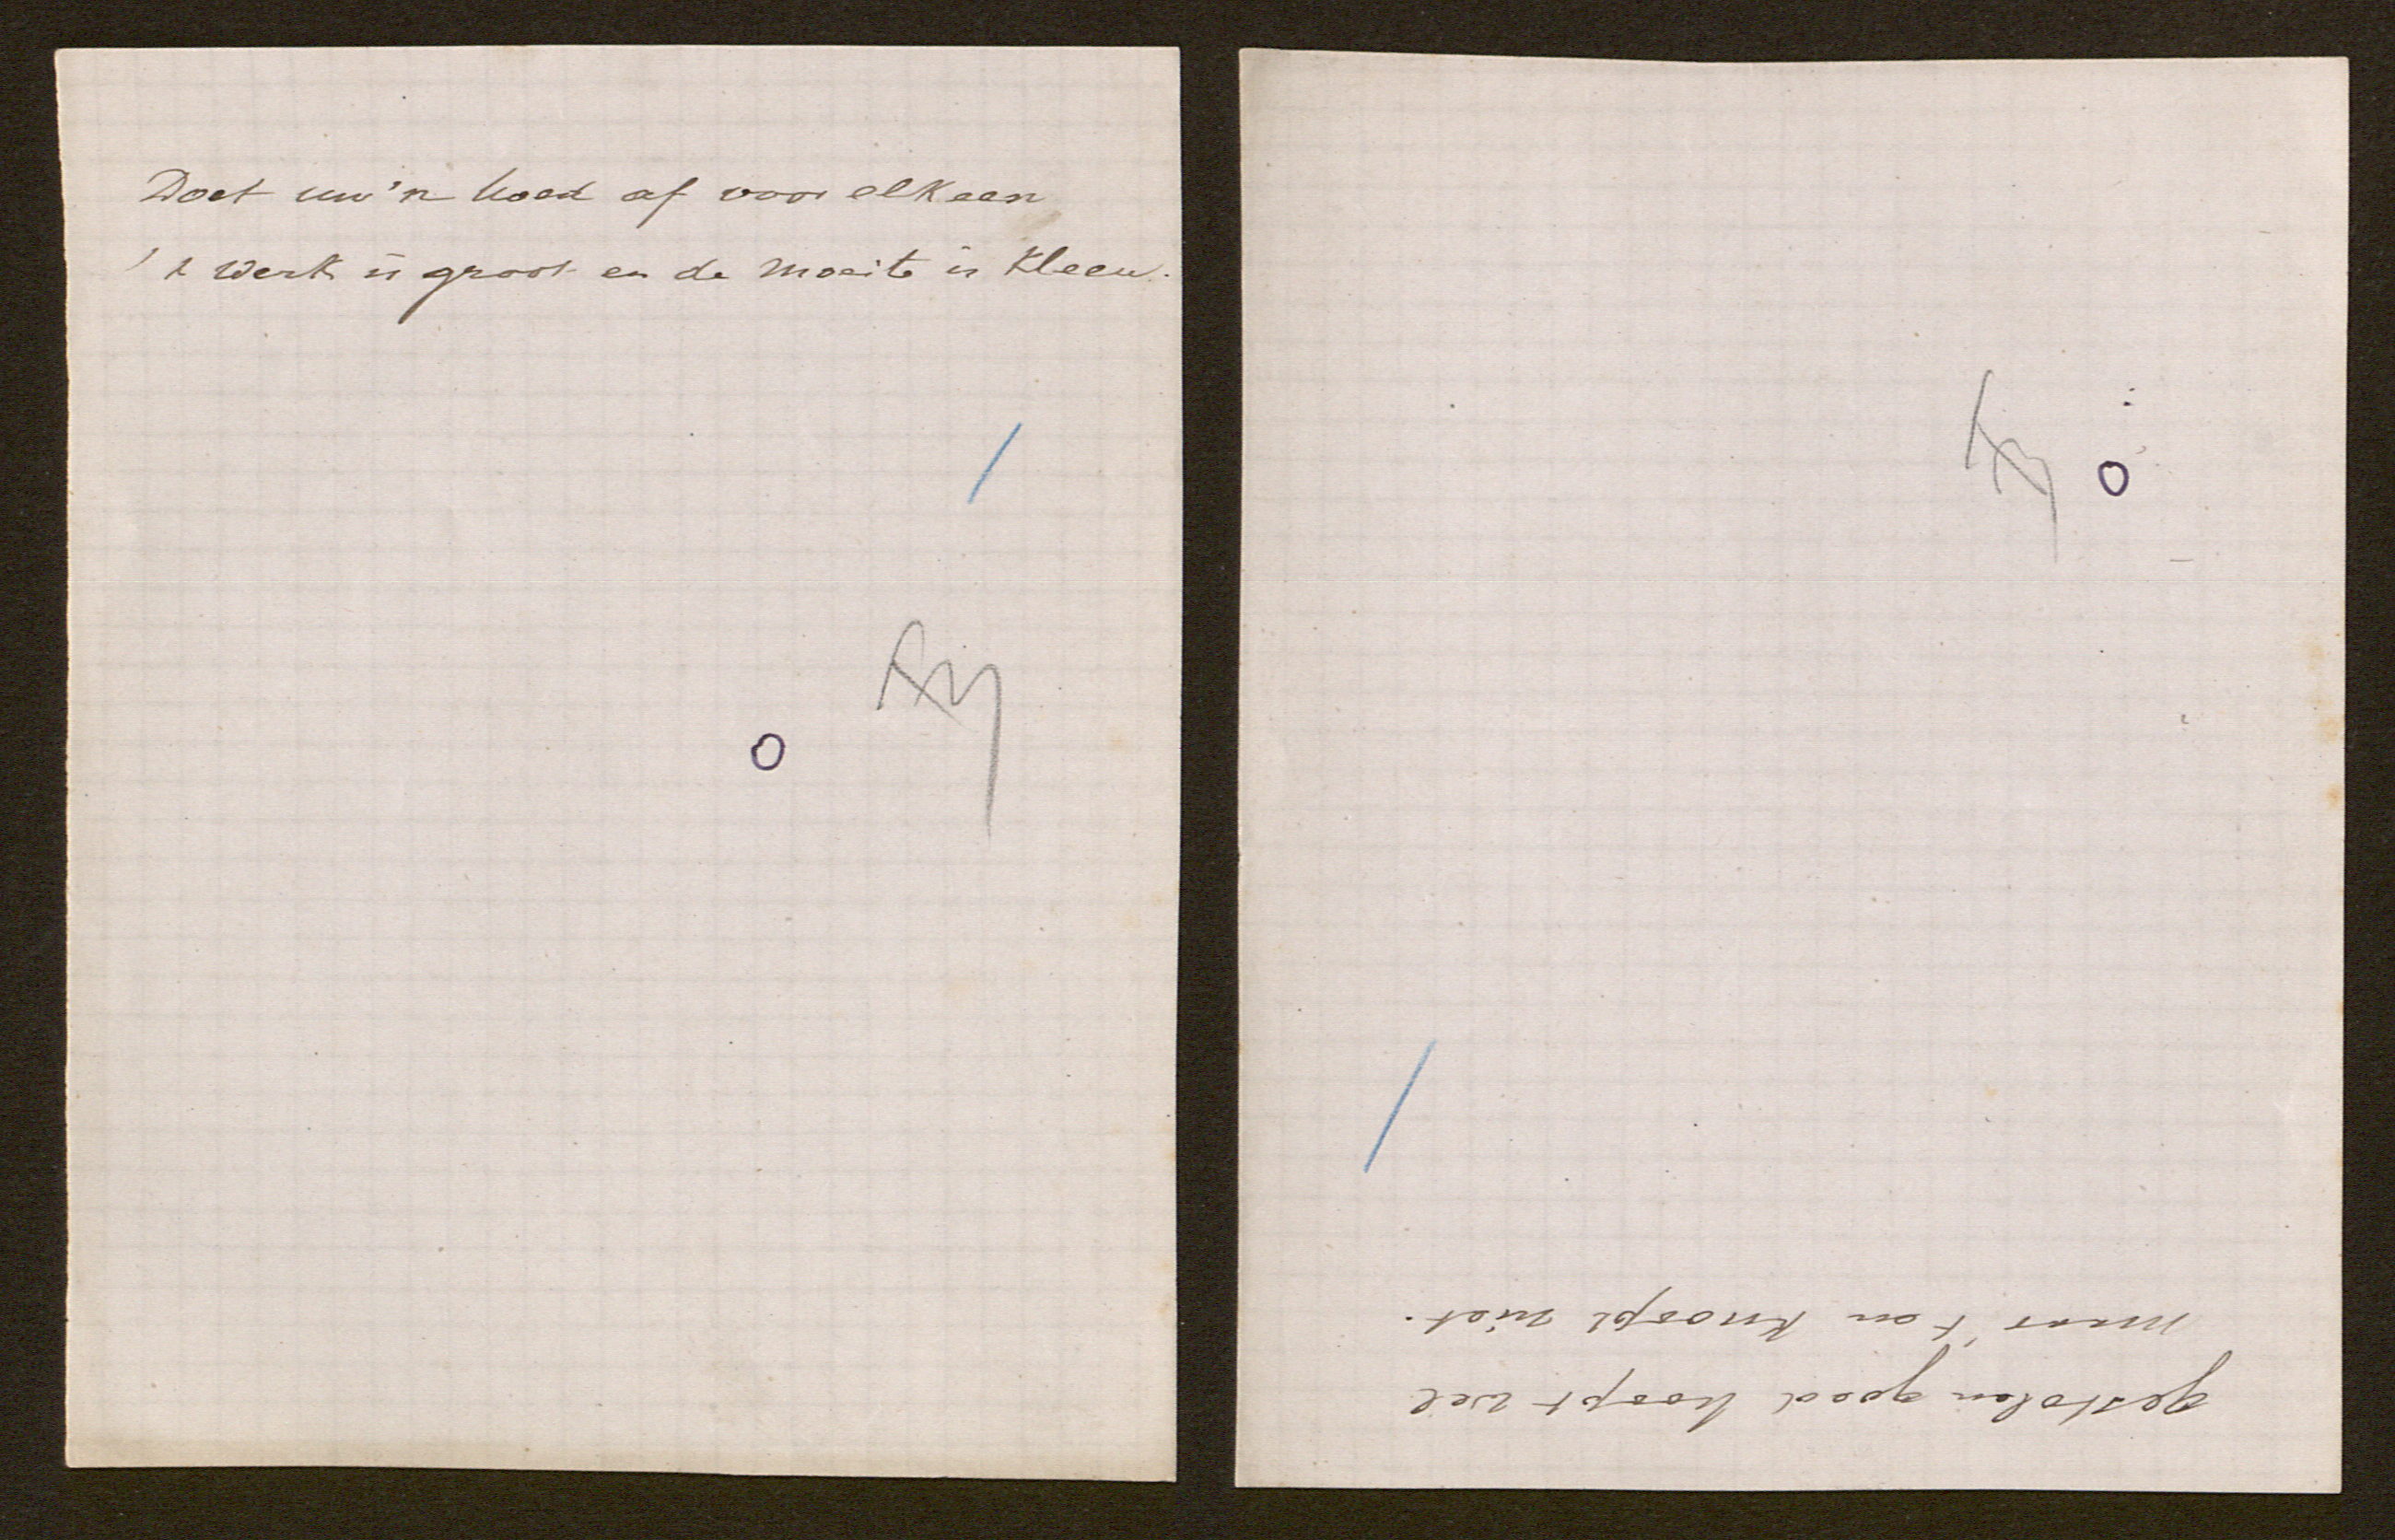 Doet uw'n hoed af voor elkeen
't werk is groot en de moeite is kleen.
o
gestolen goed hoopt wel
maar 't en knoopt niet.
o